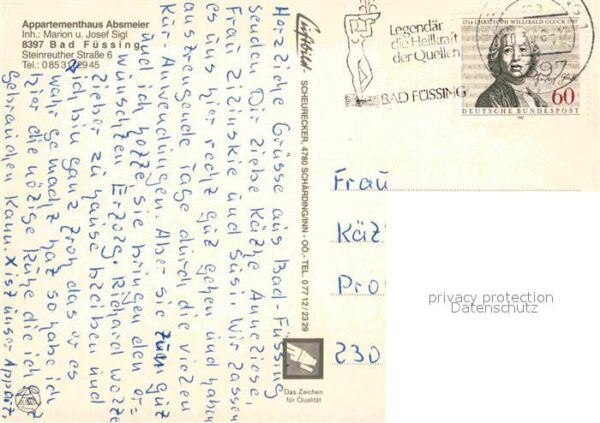 Appartementhaus Absmeier
Inh.: Marion u. Josef Sigl
8397 Bad Füssing
Steinreuther Straße 6
Tel.: 0 8531/2 29 45
Herzliche Grüsse aus Bad-Füssing
senden Dir liebe Käthe Anneliese,
Frau Zizinskie und Susi. Wir lassen
es uns hier recht gut gehen und haben
anstrengende Tage durch die vielen
Kur Anwendungen. Aber sie tun gut
und ich hoffe sie bringen den er=
wünschten Erfolg. Richard wollte
lieber zu hause bleiben und
ich bin ganz froh das er es
wahr gemacht hat so habe ich
hier die nötige Ruhe die ich
gebrauchen kann. X ist unser Appart.
Luftbild - SCHEURECKER, 4780 SCHÄRDING/INN - OÖ., TEL. 0 77 12 / 23 29
Das Zeichen
für Qualität
Legendär
die Heilkraft
der Quellen
BAD FÜSSING
1714 CHRISTOPH WILLIBALD GLUCK 1787
60
DEUTSCHE BUNDESPOST
Frau
Kät
Pro
230
privacy protection
Datenschutz